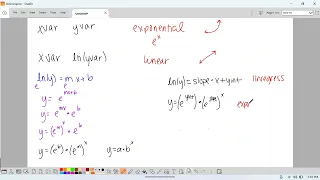 xvar yvar exponential
e^x
xvar ln(yvar) linear
ln(y) = mx + b
e e
y = e^(mx+b)
y = e^mx • e^b
y = (e^m)^x • e^b
y = (e^b) • (e^m)^x y = a • b^x
ln(y) = slope • x + yint linregress
y = (e^yint) • (e^slope)^x expo